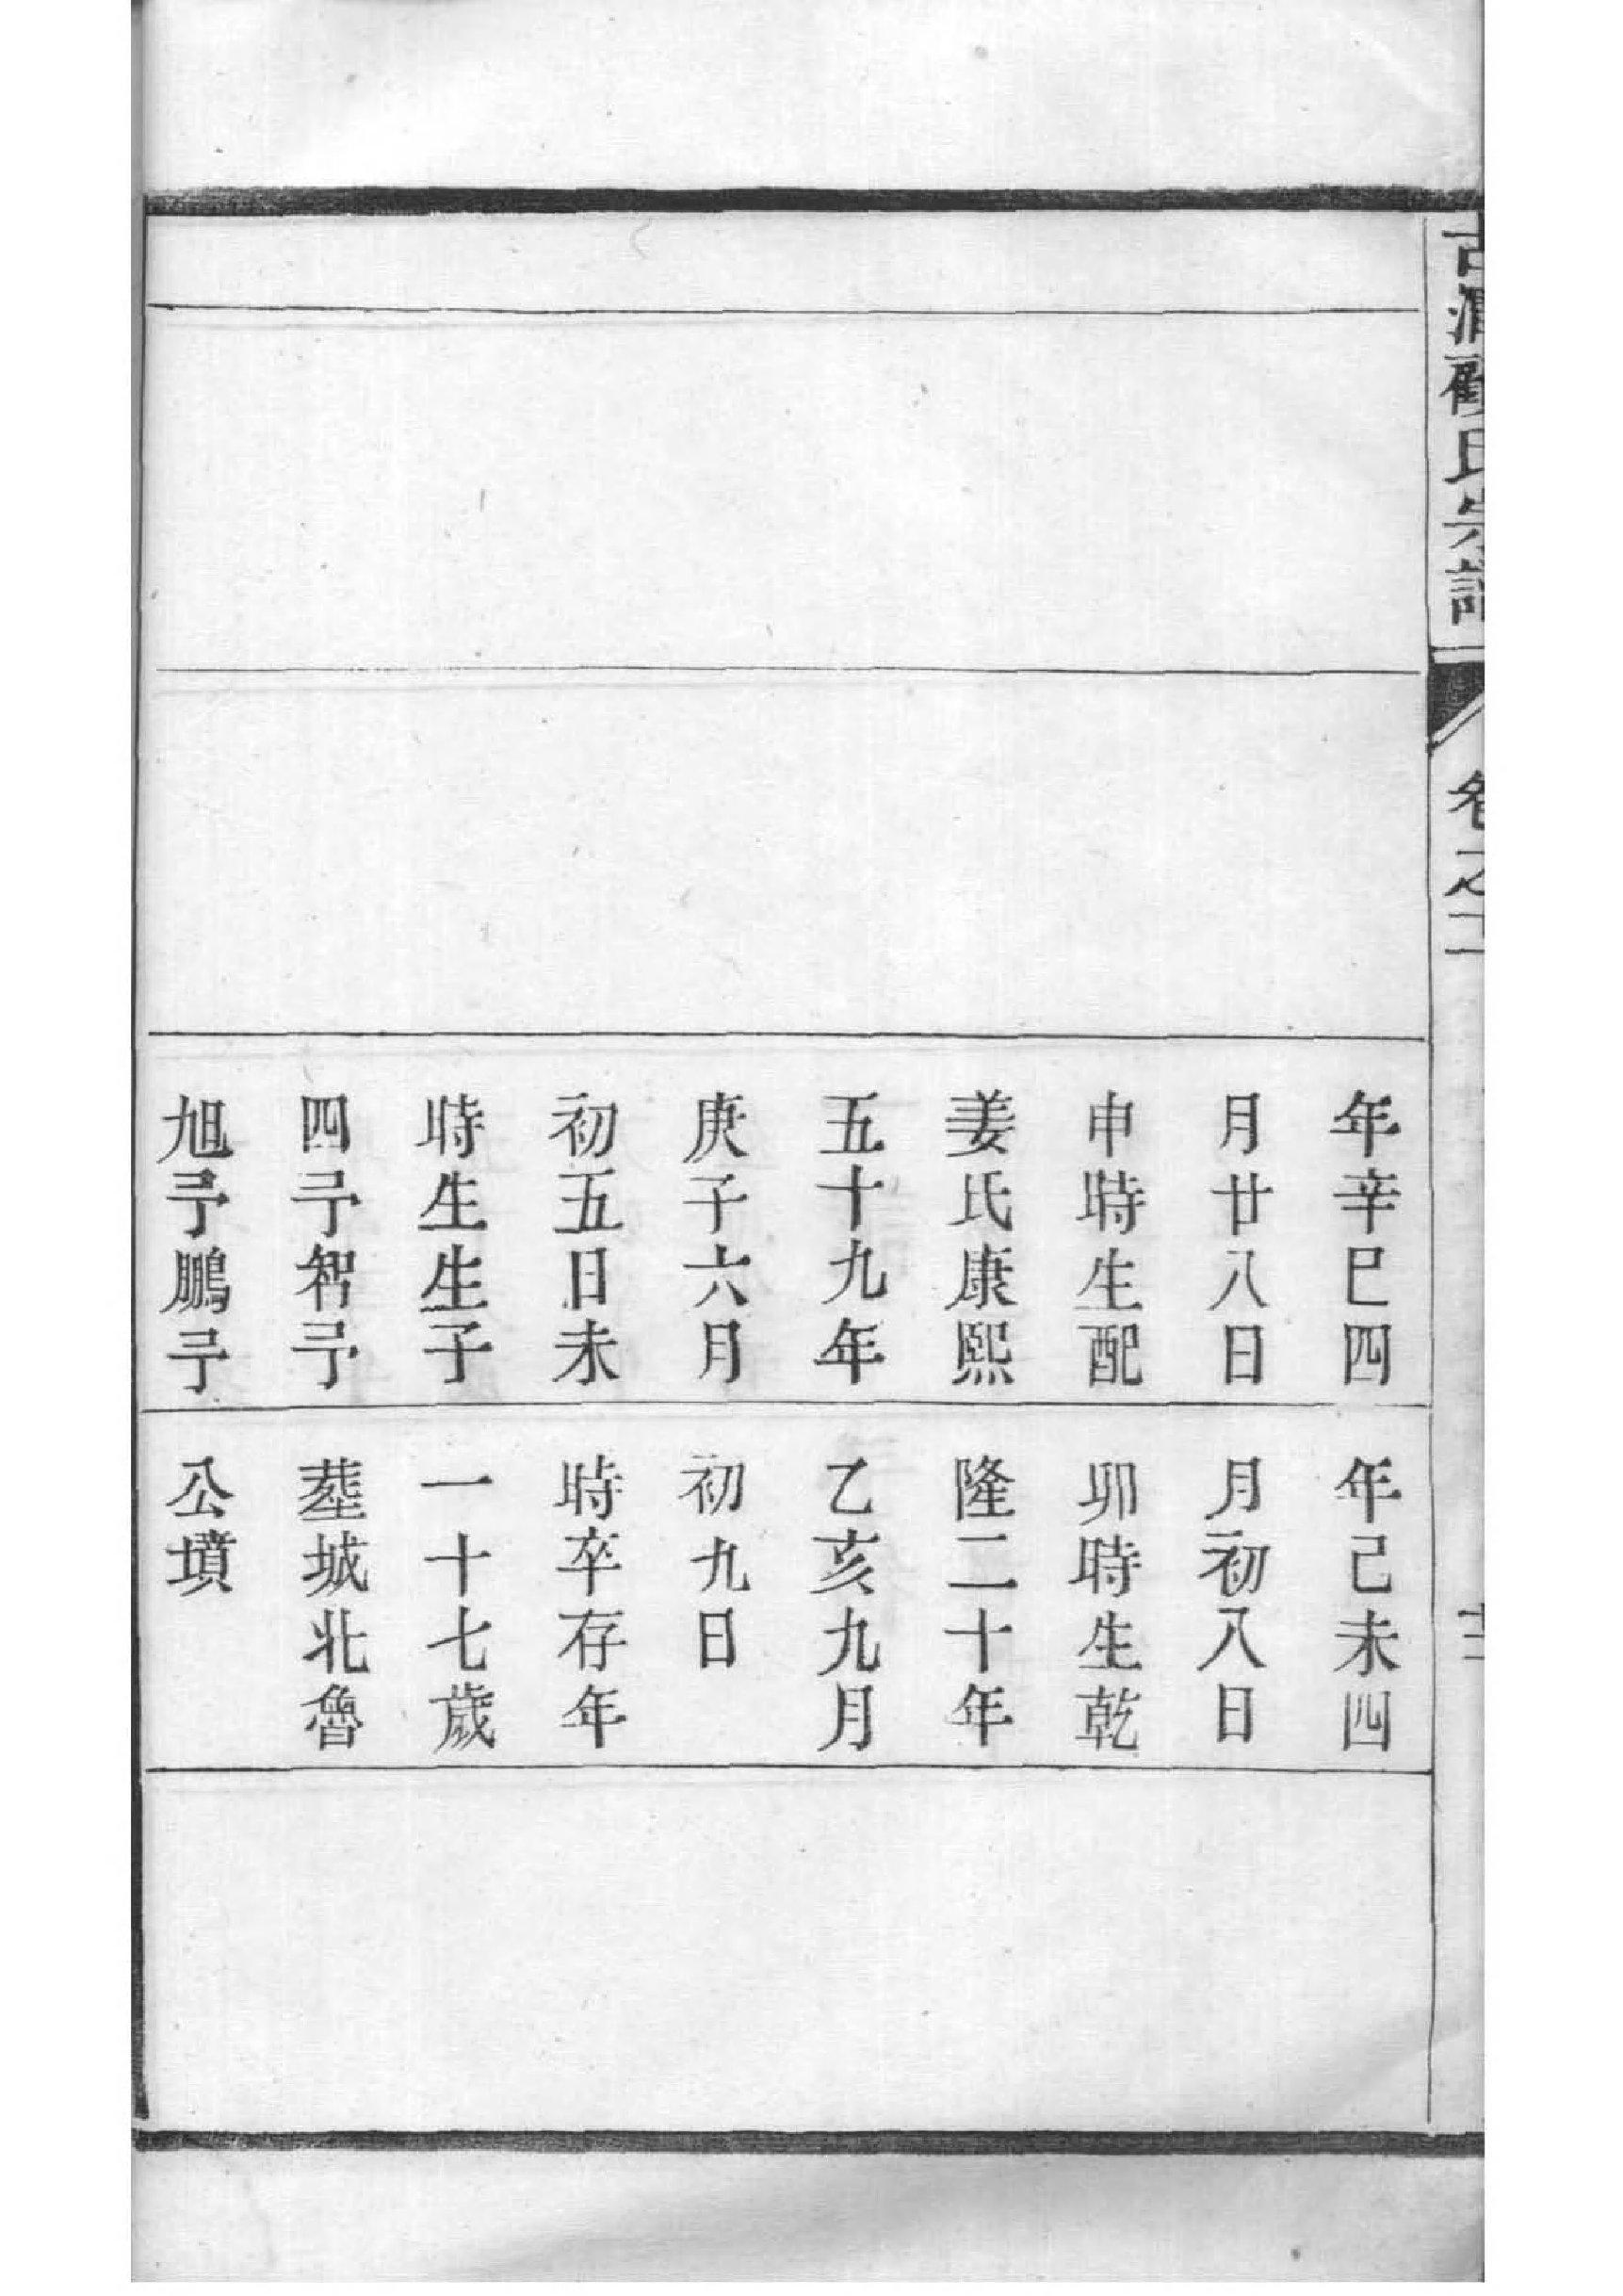 古顧氏宗譜
卷之
年辛巳四
月廿八日
申時生配
姜氏康熙
五十九年
庚子六月
初五日未
時生生子
四亍智亍
旭亍鵬亍
年己未四
月初八日
卯時生乾
隆二十年
乙亥九月
初九日
時卒存年
一十七歲
塟城北魯
公墳